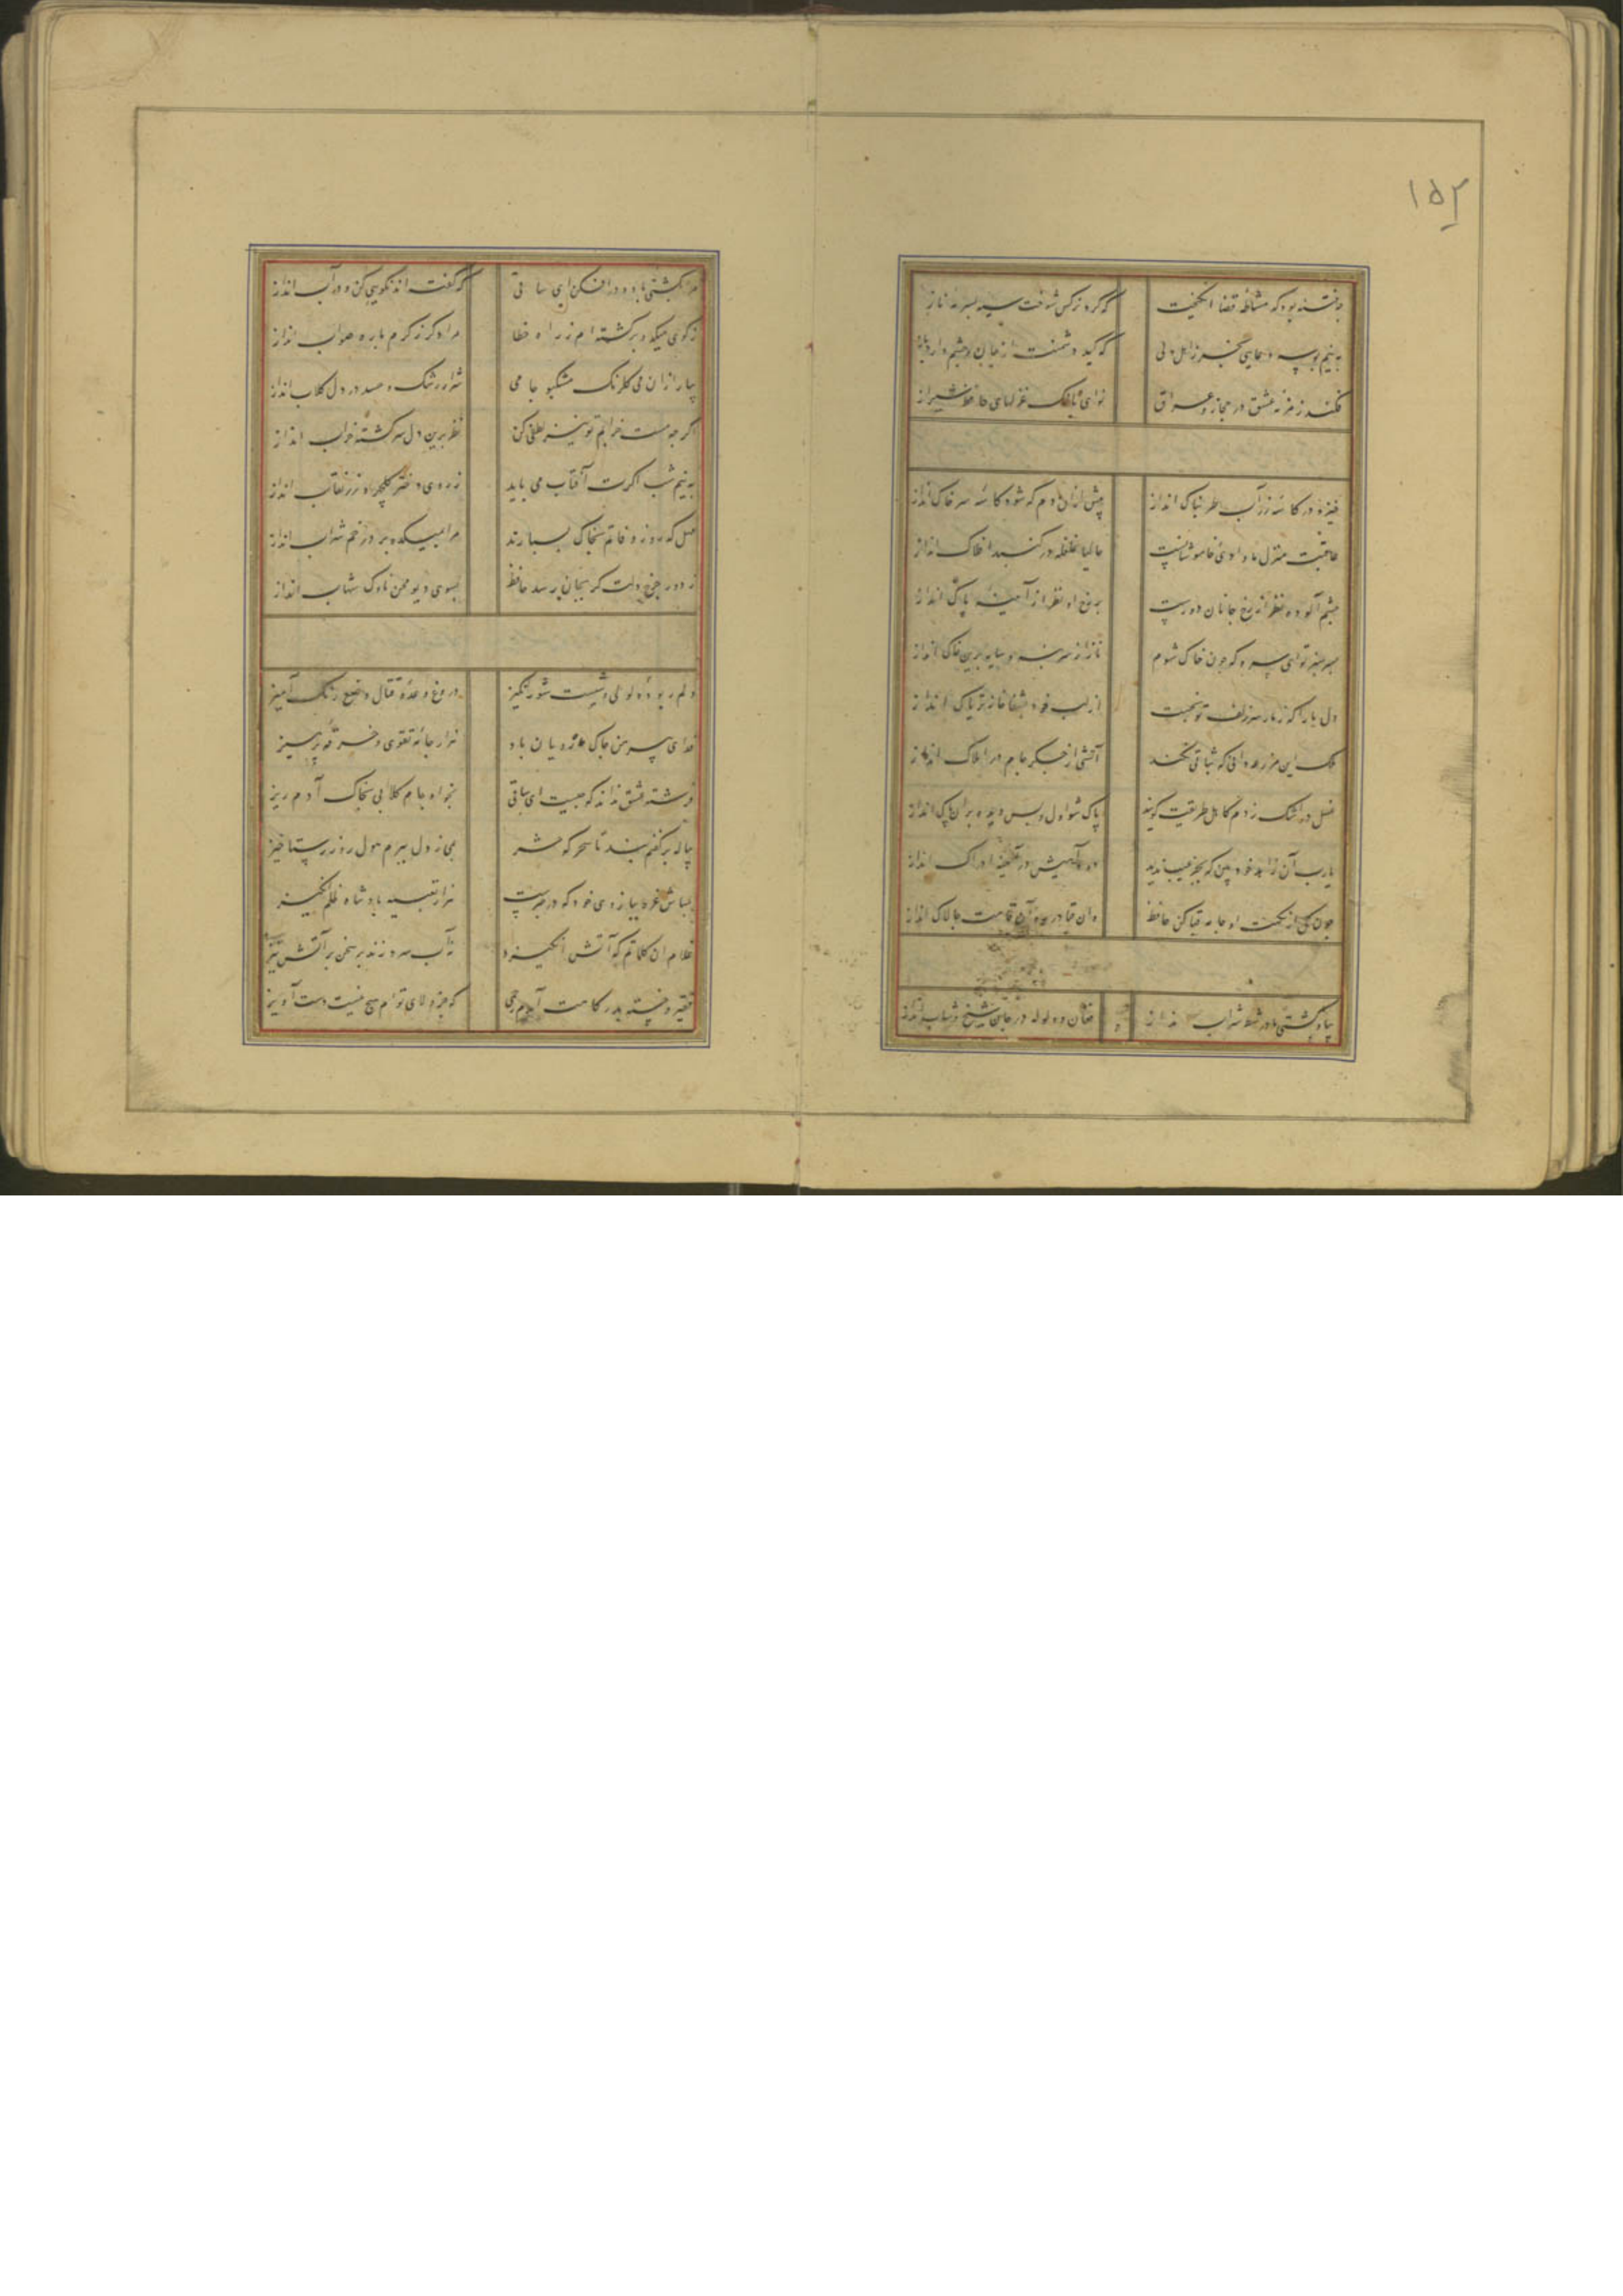 ۱۵۲
چه فتنه بود که مشاطه قضا انگیخت که کرد نرگس شوخت سیه بسرمه ناز
به نیم بوسه دعایی بخر ز اهل دلی که کید دشمنت از جان و چشم دارد باز
فکند زمزمه عشق در حجاز و عراق نوای بانگ غزلهای حافظ شیراز
خیز و در کاسه زر آب طربناک انداز پیش ازان دم که شود کاسه سر خاک انداز
عاقبت منزل ما وادی خاموشانست حالیا غلغله در گنبد افلاک انداز
چشم آلوده نظر از رخ جانان دورست بر رخ او نظر از آینه پاک انداز
بسر سبز تو ای سرو که چون خاک شوم ناز از سر بنه و سایه برین خاک انداز
دل ما را که ز مار سر زلف تو بخست از لب خود بشفاخانه تریاک انداز
ملک این مزرعه دانی که ثباتی نکند آتشی از جگر جام در املاک انداز
غسل در اشک زدم کاهل طریقت گویند پاک شو اول و پس دیده بر آن پاک انداز
یارب آن زاهد خودبین که بجز عیب ندید دود آهیش در آیینه ادراک انداز
چون گل از نکهت او جامه قبا کن حافظ وان قبا در ره آن قامت چالاک انداز
بیا و کشتی ما در شط شراب انداز فغان و ولوله در جان شیخ و شاب انداز
مرا بکشتی باده در افکن ای ساقی که گفته‌اند نکویی کن و در آب انداز
ز کوی میکده برگشته‌ام ز راه خطا مرا دگر ز کرم با ره صواب انداز
بیار ازان می گلرنگ مشکبو جامی شرار رشک و حسد در دل گلاب انداز
اگر چه مست خرابم تو نیز لطفی کن نظر برین دل سرگشته خراب انداز
به نیم شب اگرت آفتاب می باید ز روی دختر گلچهر رز نقاب انداز
مهل که روز وفاتم بخاک بسپارند مرا بمیکده بر در خم شراب انداز
ز دور چرخ دلت گر بجان رسد حافظ بسوی دیو محن ناوک شهاب انداز
دلم ربوده لولی وشیست شورانگیز دروغ وعده و قتال وضع رنگ آمیز
فدای پیرهن چاک ماه رویان باد هزار جامه تقوی و خرقه پرهیز
فرشته عشق نداند که چیست ای ساقی بخواه جام گلابی بخاک آدم ریز
پیاله بر کفنم بند تا سحرگه حشر بمی ز دل ببرم هول روز رستاخیز
مباش غره ببازوی خود که در خبرست هزار تعبیه پادشاه
غلام ان کلماتم که آتش انگیزد نه آب سرد زند بر سخن بر آتش تیز
فقیر و خسته بدرگاهت آمدم رحمی که جز ولای توام هیچ نیست دست آویز